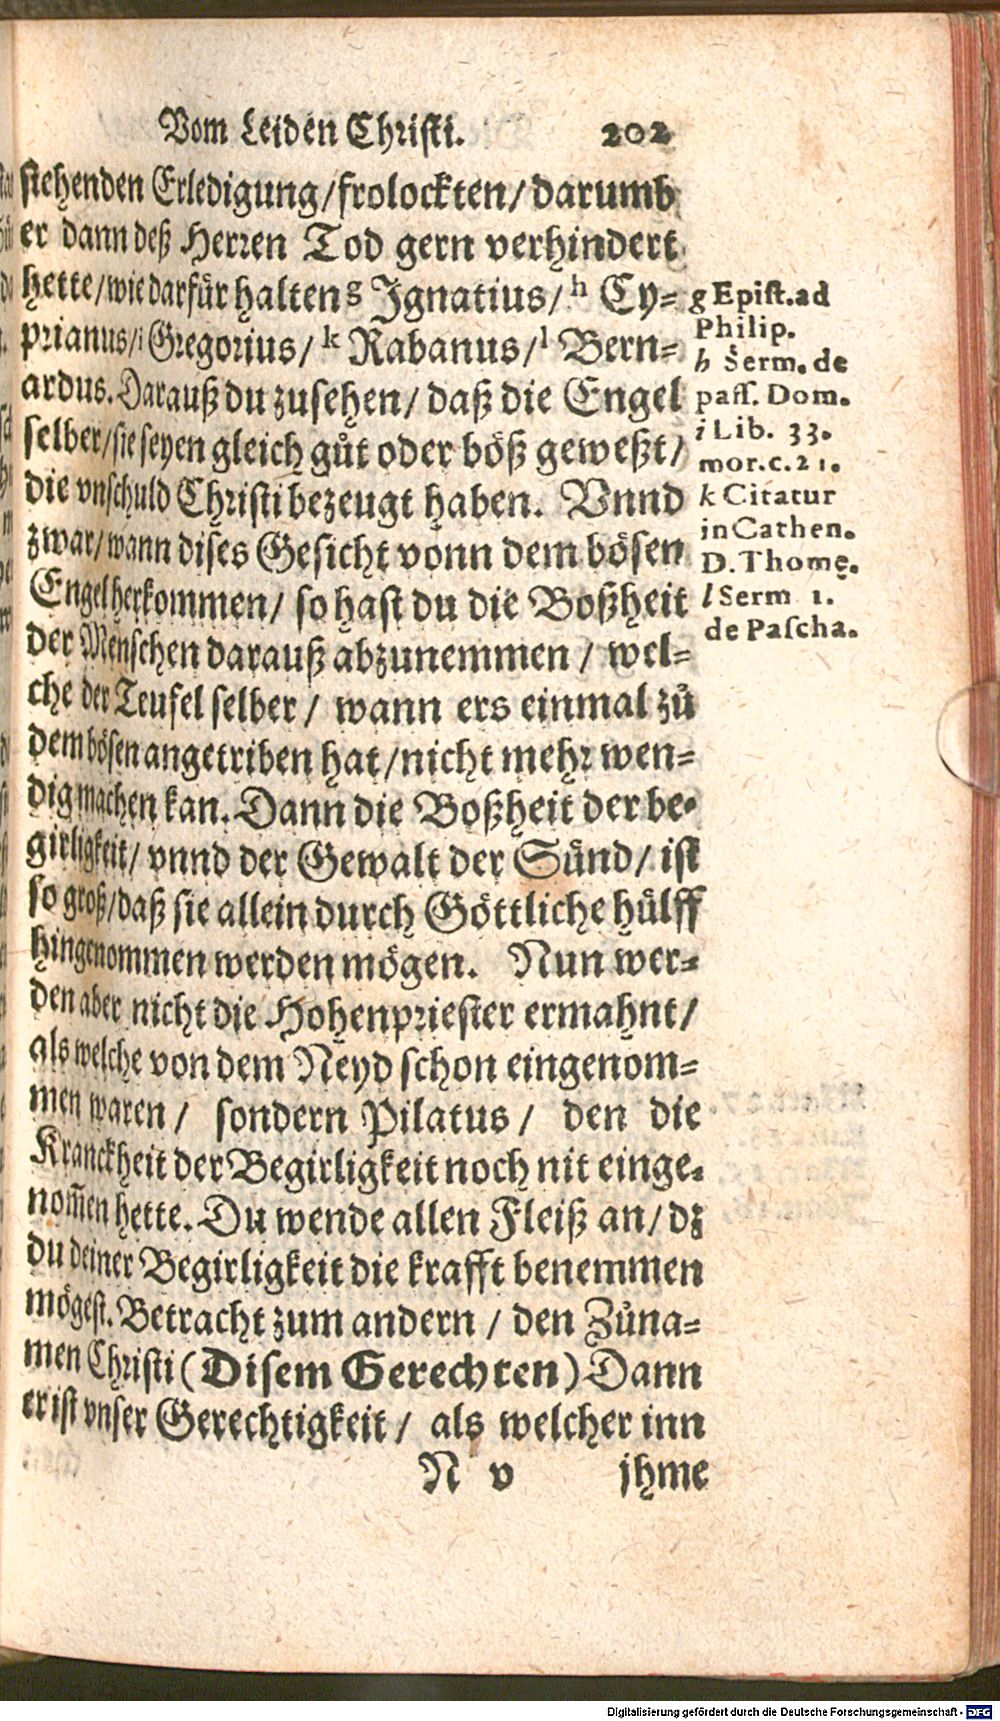 Vom Leiden Christi. 202
stehenden Erledigung/frolockten/darumb
er dann deß Herren Tod gern verhindert
hette/wie darfür halten g Ignatius/ h Cy-
prianus/i Gregorius/ k Rabanus/ l Bern-
ardus. Darauß du zusehen/ daß die Engel
selber/sie seyen gleich gůt oder böß geweßt/
die vnschuld Christi bezeugt haben. Vnnd
zwar/wann dises Gesicht vonn dem bösen
Engel herkommen/ so hast du die Boßheit
der Menschen darauß abzunemmen / wel-
che der Teufel selber / wann ers einmal zů
dem bösen angetriben hat/nicht mehr wen-
dig machen kan. Dann die Boßheit der be-
girligkeit/ vnnd der Gewalt der Sünd/ ist
so groß/daß sie allein durch Göttliche hülff
hingenommen werden mögen. Nun wer-
den aber nicht die Hohenpriester ermahnt/
als welche von dem Neyd schon eingenom-
men waren / sondern Pilatus / den die
Kranckheit der Begirligkeit noch nit einge-
nom̃en hette. Du wende allen Fleiß an/dz
du deiner Begirligkeit die krafft benemmen
mögest. Betracht zum andern / den Zůna-
men Christi (Disem Gerechten) Dann
er ist vnser Gerechtigkeit / als welcher inn
N v jhme
g Epist.ad
Philip.
h Serm.de
pass. Dom.
i Lib. 33.
mor.c.21.
k Citatur
in Cathen.
D.Thomę.
l Serm 1.
de Pascha.
Digitalisierung gefördert durch die Deutsche Forschungsgemeinschaft - DFG